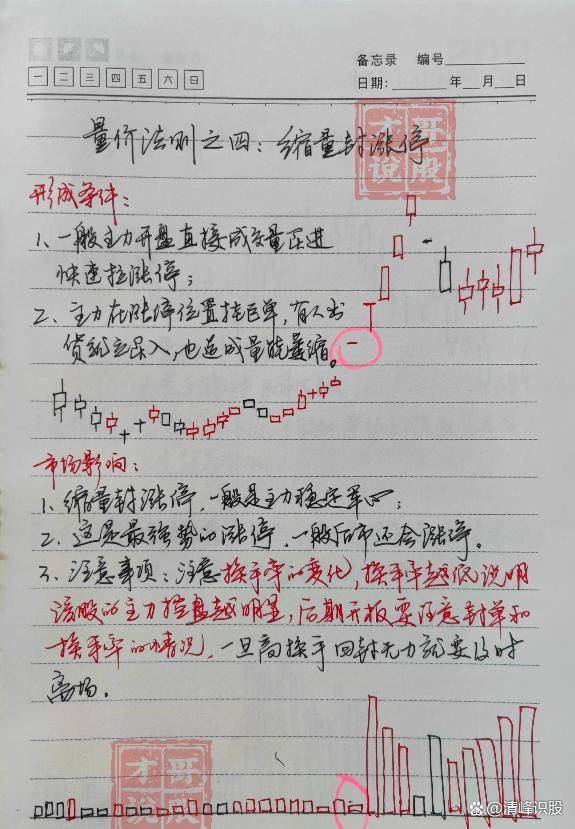 备忘录 编号
一 二 三 四 五 六 日
日期: 年 月 日
才哥说股
量价法则之四：缩量封涨停
形成条件：
1、一般主力开盘直接成交量买进
快速拉涨停；
2、主力在涨停位置挂巨单，有人出
货就立买入，也造成量能萎缩。
市场影响：
1、缩量封涨停，一般是主力稳定军心；
2、这是最强势的涨停，一般后市还会涨停。
3、注意事项：注意换手率的变化，换手率越低说明
该股的主力控盘越明显，后期开板要注意封单和
换手率的情况，一旦高换手回封无力就要及时
离场。
才哥说
@清峰识股